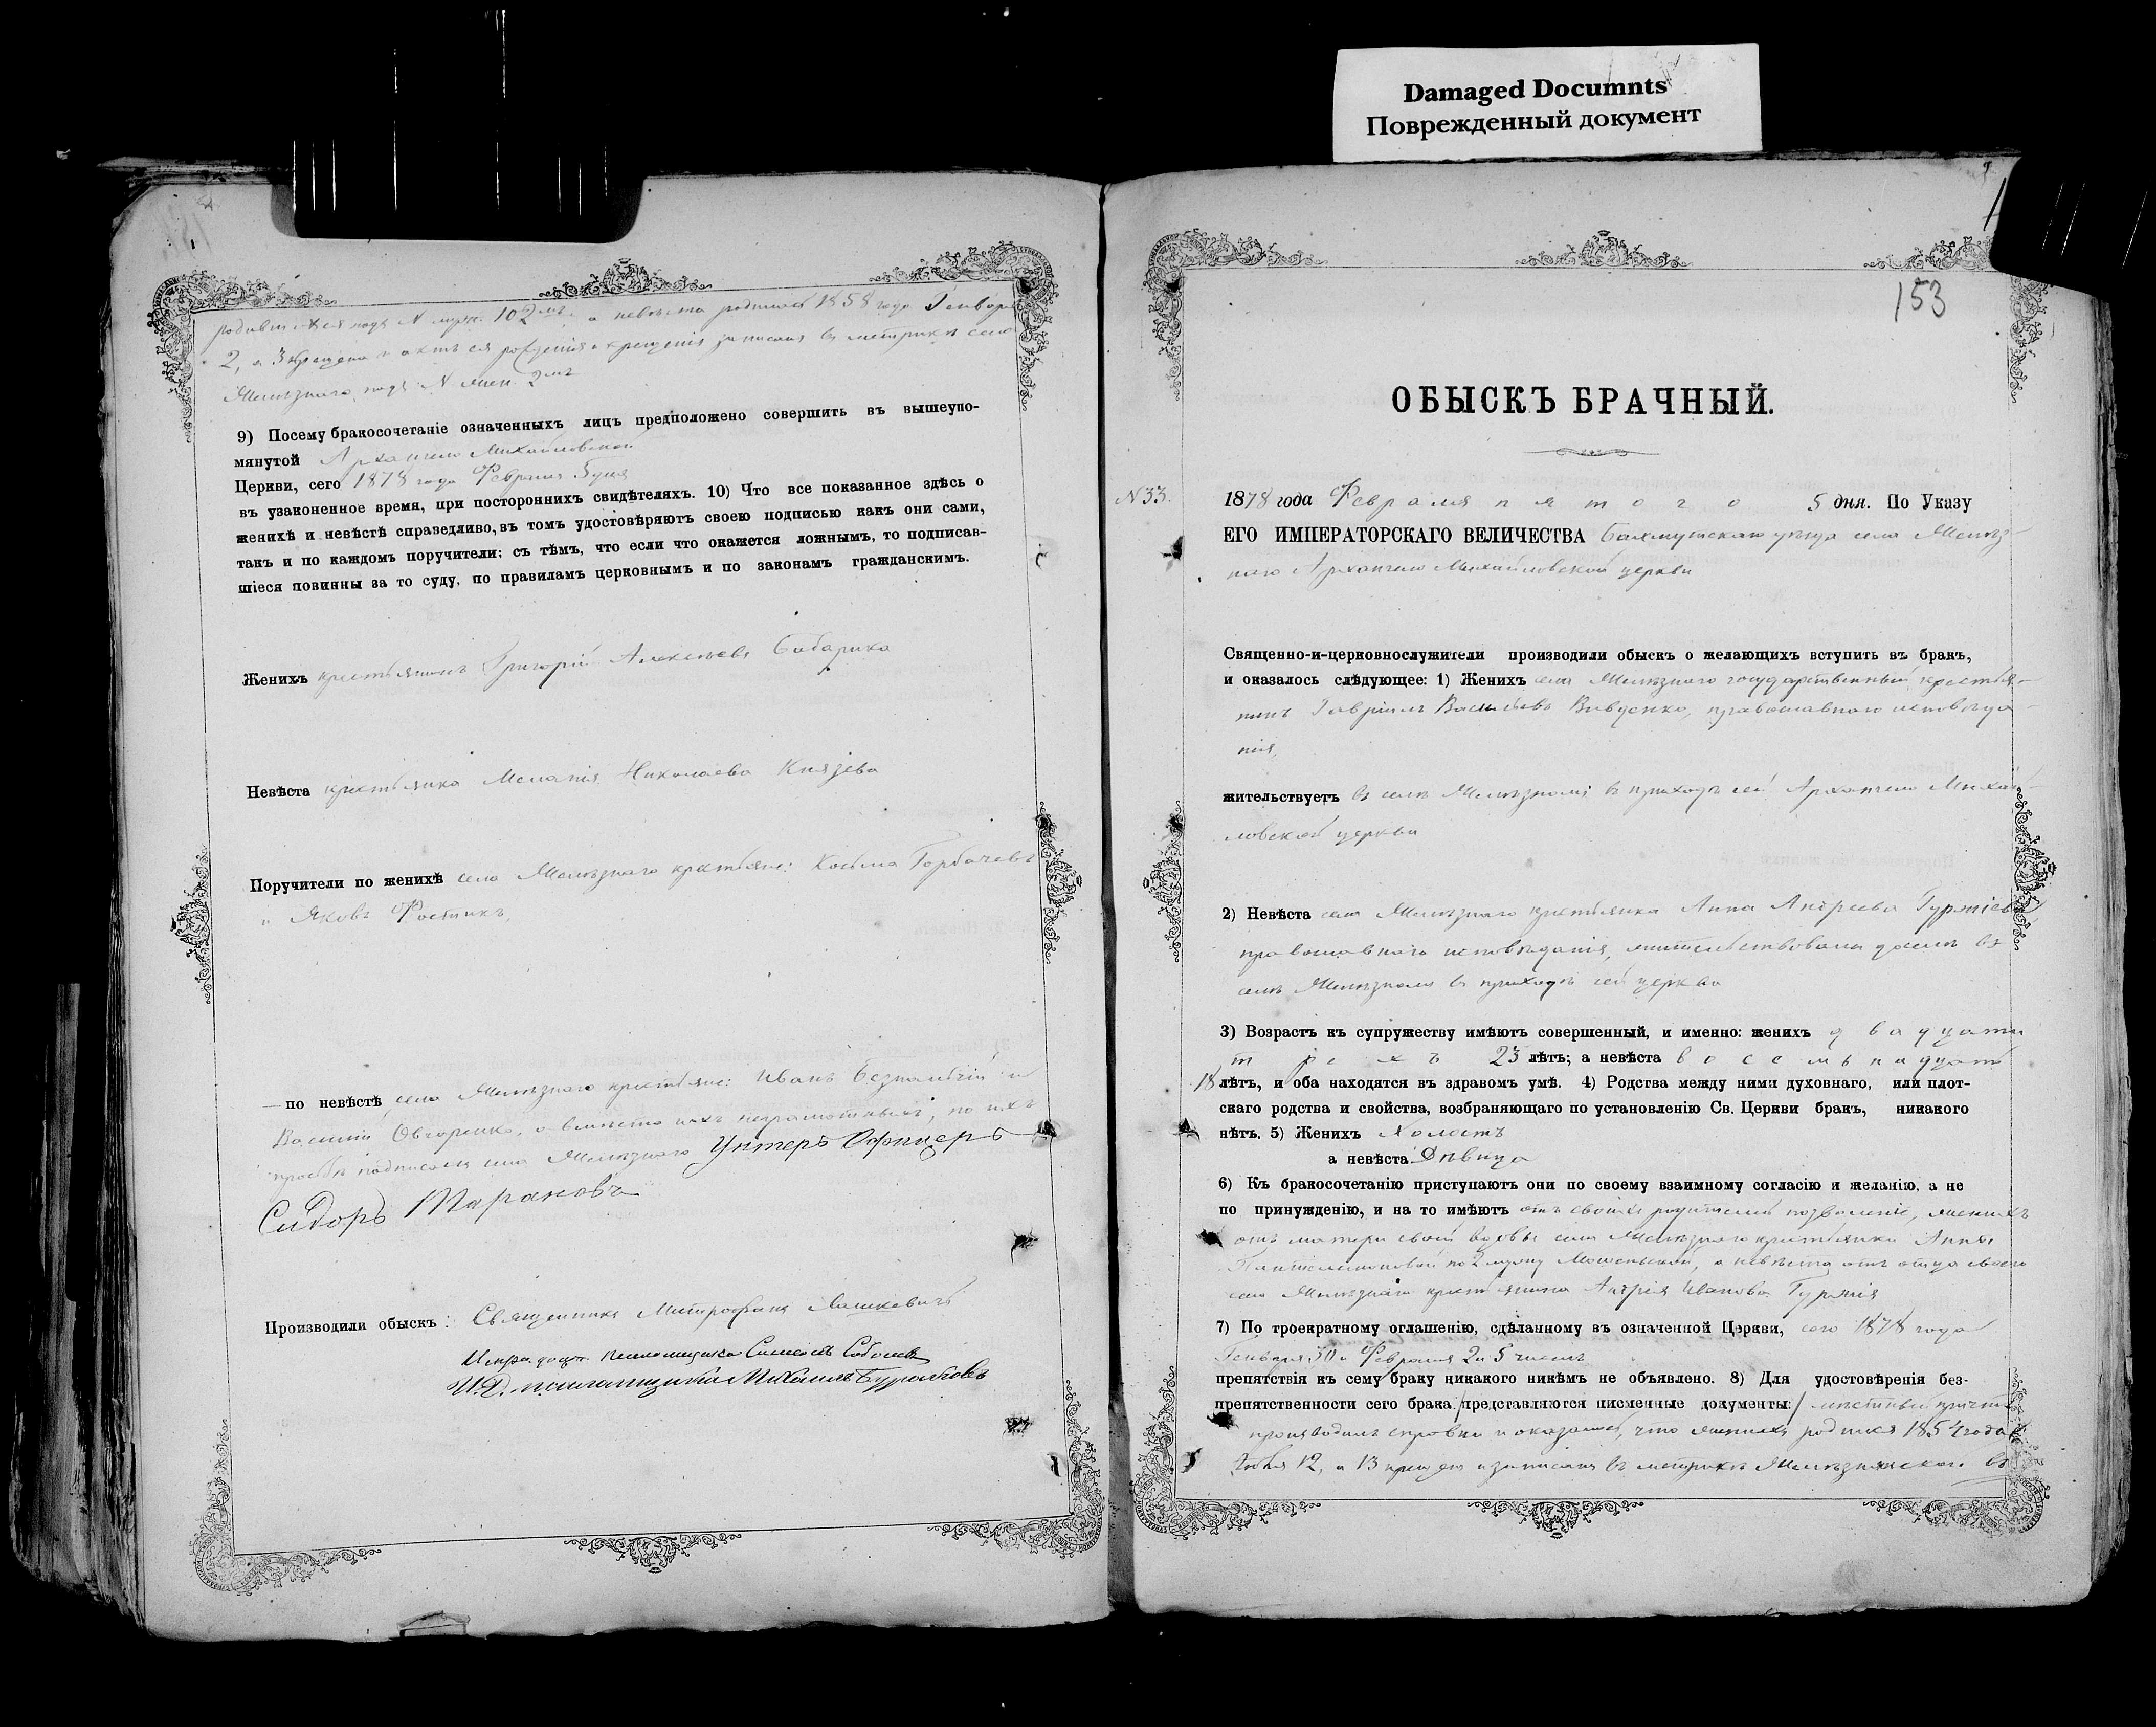 Damaged Documnts
Поврежденный документ
родившихся подъ N муж. 102мъ, а невѣста родилась 1858 года Генваря
2, а 3 крещена и актъ ея рожденія и крещенія записанъ въ метрикѣ села
Желѣзнаго подъ N жен. 2мъ
9) Посему бракосочетаніе означенныхъ лицъ предположено совершить въ вышеупо-
мянутой Архангело Михайловской
Церкви, сего 1878 года Февраля 5 дня
въ узаконенное время, при постороннихъ свидѣтеляхъ. 10) Что все показанное здѣсь о
женихѣ и невѣстѣ справедливо, въ томъ удостовѣряютъ своею подписью какъ они сами,
такъ и по каждомъ поручители; съ тѣмъ, что если что окажется ложнымъ, то подписав-
шіеся повинны за то суду, по правиламъ церковнымъ и по законамъ гражданскимъ.
Женихъ крестьянинъ Григорій Алексѣевъ Бабарика
Невѣста крестьянка Меланія Николаева Князева
Поручители по женихѣ села Желѣзнаго крестьяне: Косьма Горбачевъ
и Яковъ Фостикъ,
— по невѣстѣ села Желѣзнаго крестьяне: Иванъ Безпалый и
Василій Овчаренко, а вмѣсто ихъ неграмотныхъ, по ихъ
просьбѣ подписался села Желѣзнаго Унтеръ Офицеръ
Сидоръ Тарановъ
Производили обыскъ: Священникъ Митрофанъ
Исправ. долж. псаломщика Симеонъ Соболевъ
И. Д. псаломщика Михаилъ
153
ОБЫСКЪ БРАЧНЫЙ.
N 33.
1878 года Февраля пятого 5 дня. По Указу
ЕГО ИМПЕРАТОРСКАГО ВЕЛИЧЕСТВА Бахмутскаго уѣзда села Желѣз-
наго Архангело Михайловской церкви
Священно-и-церковнослужители производили обыскъ о желающихъ вступить въ бракъ,
и оказалось слѣдующее: 1) Женихъ села Желѣзнаго государственный крестья-
нинъ Гавріилъ Васильевъ Вивденко, православнаго исповѣда-
нія,
жительствуетъ въ селѣ Желѣзномъ въ приходѣ сей Архангело Михай-
ловской церкви
2) Невѣста села Желѣзнаго крестьянка Анна Андреева Гуржіева
православнаго исповѣданія, жительствовала далѣе въ
селѣ Желѣзномъ въ приходѣ сей церкви
3) Возрастъ къ супружеству имѣютъ совершенный, и именно: женихъ двадцати
трехъ 23 лѣтъ; а невѣста восемьнадцати
18 лѣтъ, и оба находятся въ здравомъ умѣ. 4) Родства между ними духовнаго, или плот-
скаго родства и свойства, возбраняющаго по установленію Св. Церкви бракъ, никакого
нѣтъ. 5) Женихъ Холостъ
а невѣста Дѣвица
6) Къ бракосочетанію приступаютъ они по своему взаимному согласію и желанію, а не
по принужденію, и на то имѣютъ отъ своихъ родителей позволеніе, женихъ
отъ матери своей вдовы села Желѣзнаго крестьянки Анны
Пантелеимоновой по 2 мужу а невѣста отъ отца своего
села Желѣзнаго крестьянина Андрея Иванова Гуржія
7) По троекратному оглашенію, сдѣланному въ означенной Церкви, сего 1878 года
Генваря 30 и Февраля 2 и 5 чиселъ
препятствія къ сему браку никакого никѣмъ не объявлено. 8) Для удостовѣренія без-
препятственности сего брака /представляются писменные документы:/ мѣстный причтъ
производилъ справки и оказалось, что женихъ родился 1854 года
12, а 13 крещенъ и записанъ въ метрикѣ въ